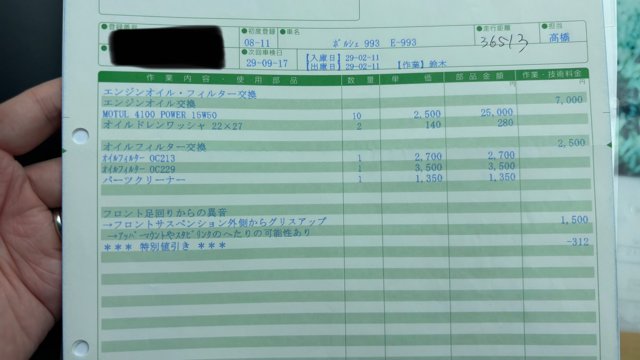 登録番号
初度登録
車名
走行距離
担当
08-11
ポルシェ 993 E-993
36513
高橋
次回車検日
29-09-17
【入庫日】29-02-11
【出庫日】29-02-11
【作業】鈴木
作業内容・使用部品 数量 単価 部品金額 作業・技術料金
円 円
エンジンオイル・フィルター交換
エンジンオイル交換 7,000
MOTUL 4100 POWER 15W50 10 2,500 25,000
オイルドレンワッシャ 22×27 2 140 280
オイルフィルター交換 2,500
オイルフィルター OC213 1 2,700 2,700
オイルフィルター OC229 1 3,500 3,500
パーツクリーナー 1 1,350 1,350
フロント足回りからの異音
→フロントサスペンション外側からグリスアップ 1,500
→アッパーマウントやスタビリンクのへたりの可能性あり
*** 特別値引き *** -312